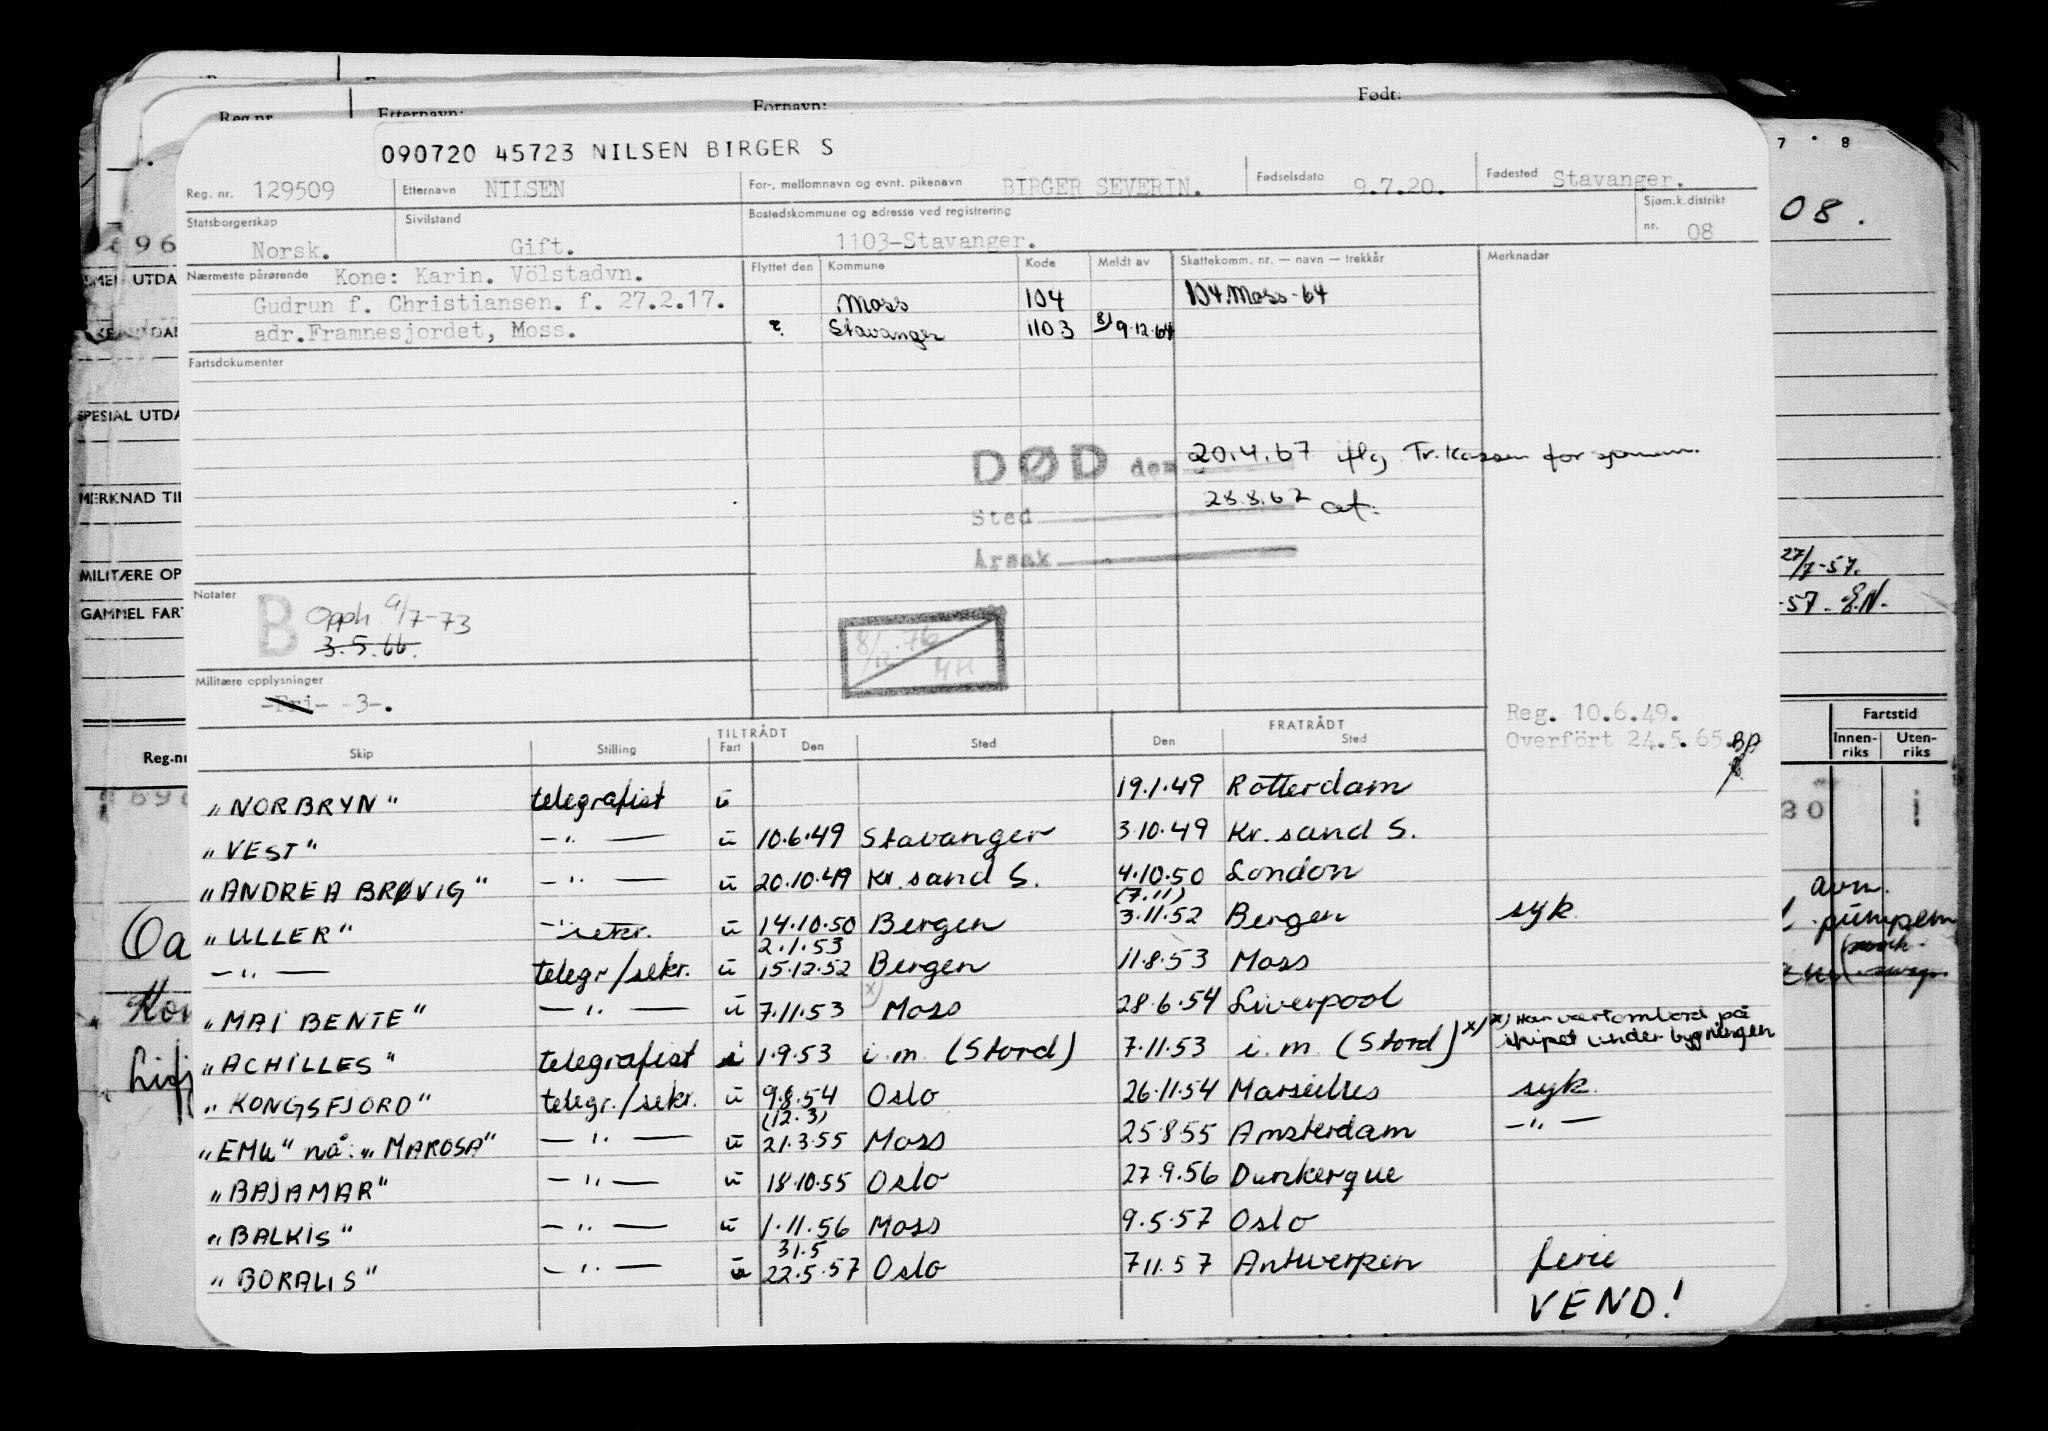 Reg.nr. Etternavn: Fornavn: Født:
090720 45723 NILSEN BIRGER S
Reg. nr. 129509 Etternavn NILSEN For-, mellomnavn og evnt. pikenavn BIRGER SEVERIN. Fødselsdato 9.7.20. Fødested Stavanger.
Statsborgerskap Norsk. Sivilstand Gift. Bostedskommune og adresse ved registrering 1103-Stavanger. Sjøm.k.distrikt nr. 08
08.
Nærmeste pårørende Kone: Karin. Völstadvn. Flyttet den Kommune Kode Meldt av Skattekomm. nr. — navn — trekkår Merknadar
Gudrun f. Christiansen. f. 27.2.17. Moss 104 104 Moss-64
adr.Framnesjordet, Moss. ? Stavanger 1103 8/9.12.64
Fartsdokumenter
SPESIAL UTDA
MERKNAD TIL
MILITÆRE OP
GAMMEL FART
DØD den 20.4.67 iflg. Tr.kassen for sjømenn.
Sted 28.8.67
Årsak
27/7-57.
-57. E.N.
Notater B Opph 9/7-73
3.5.66.
8/12.76 MH
Militære opplysninger
-Fri- -3-.
Reg. 10.6.49.
Overført 24.5.65. BA
Fartstid
Innenriks Utenriks
Reg.nr
TILTRÅDT FRATRÅDT
Skip Stilling Fart Den Sted Den Sted
„NORBRYN" telegrafist u 19.1.49 Rotterdam
„VEST" —"— u 10.6.49 Stavanger 3.10.49 Kr.sand S.
„ANDREA BRØVIG" —"— u 20.10.49 Kr.sand S. 4.10.50 London
(7.11)
„ULLER" —"— sekr. u 14.10.50 Bergen 3.11.52 Bergen syk
2.1.53
—"— telegr/sekr. u 15.12.52 Bergen 11.8.53 Moss
„MAI BENTE" —"— u 7.11.53 x) Moss 28.6.54 Liverpool
„ACHILLES" telegrafist i 1.9.53 i.m. (Stord) 7.11.53 i.m. (Stord) x) x) Har vært ombord på
skipet under bygningen
„KONGSFJORD" telegr./sekr. u 9.8.54 Oslo 26.11.54 Marseilles syk.
(12.3)
„EMU" nå: „MAKOSA" —"— u 21.3.55 Moss 25.8.55 Amsterdam —"—
„BAJAMAR" —"— u 18.10.55 Oslo 27.9.56 Dunkerque
„BALKIS" —"— u 1.11.56 Moss 9.5.57 Oslo
31.5
„BORALIS" —"— u 22.5.57 Oslo 7.11.57 Antwerpen ferie
VEND!